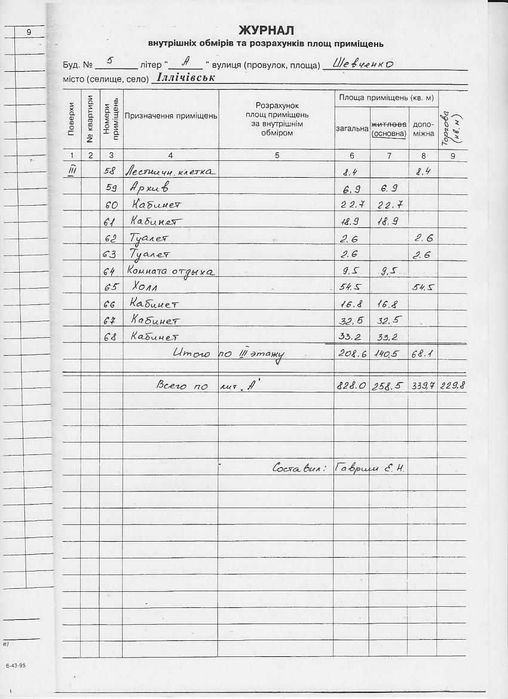 9
ЖУРНАЛ
внутрішніх обмірів та розрахунків площ приміщень
Буд. № 5 літер "А" вулиця (провулок, площа) Шевченко
місто (селище, село) Іллічівськ
Поверхи № квартири Номери приміщень Призначення приміщень Розрахунок площ приміщень за внутрішнім обміром Площа приміщень (кв. м) загальна житлова (основна) допоміжна торгова (кв. м)
1 2 3 4 5 6 7 8 9
III 58 Лестничн. клетка 8.4 8.4
59 Архив 6.9 6.9
60 Кабинет 22.7 22.7
61 Кабинет 18.9 18.9
62 Туалет 2.6 2.6
63 Туалет 2.6 2.6
64 Комната отдыха 9.5 9.5
65 Холл 54.5 54.5
66 Кабинет 16.8 16.8
67 Кабинет 32.5 32.5
68 Кабинет 33.2 33.2
Итого по III этажу 208.6 140.5 68.1
Всего по лит. "А" 828.0 258.5 339.7 229.8
Составил: Гаврили Е.Н.
6-43-95